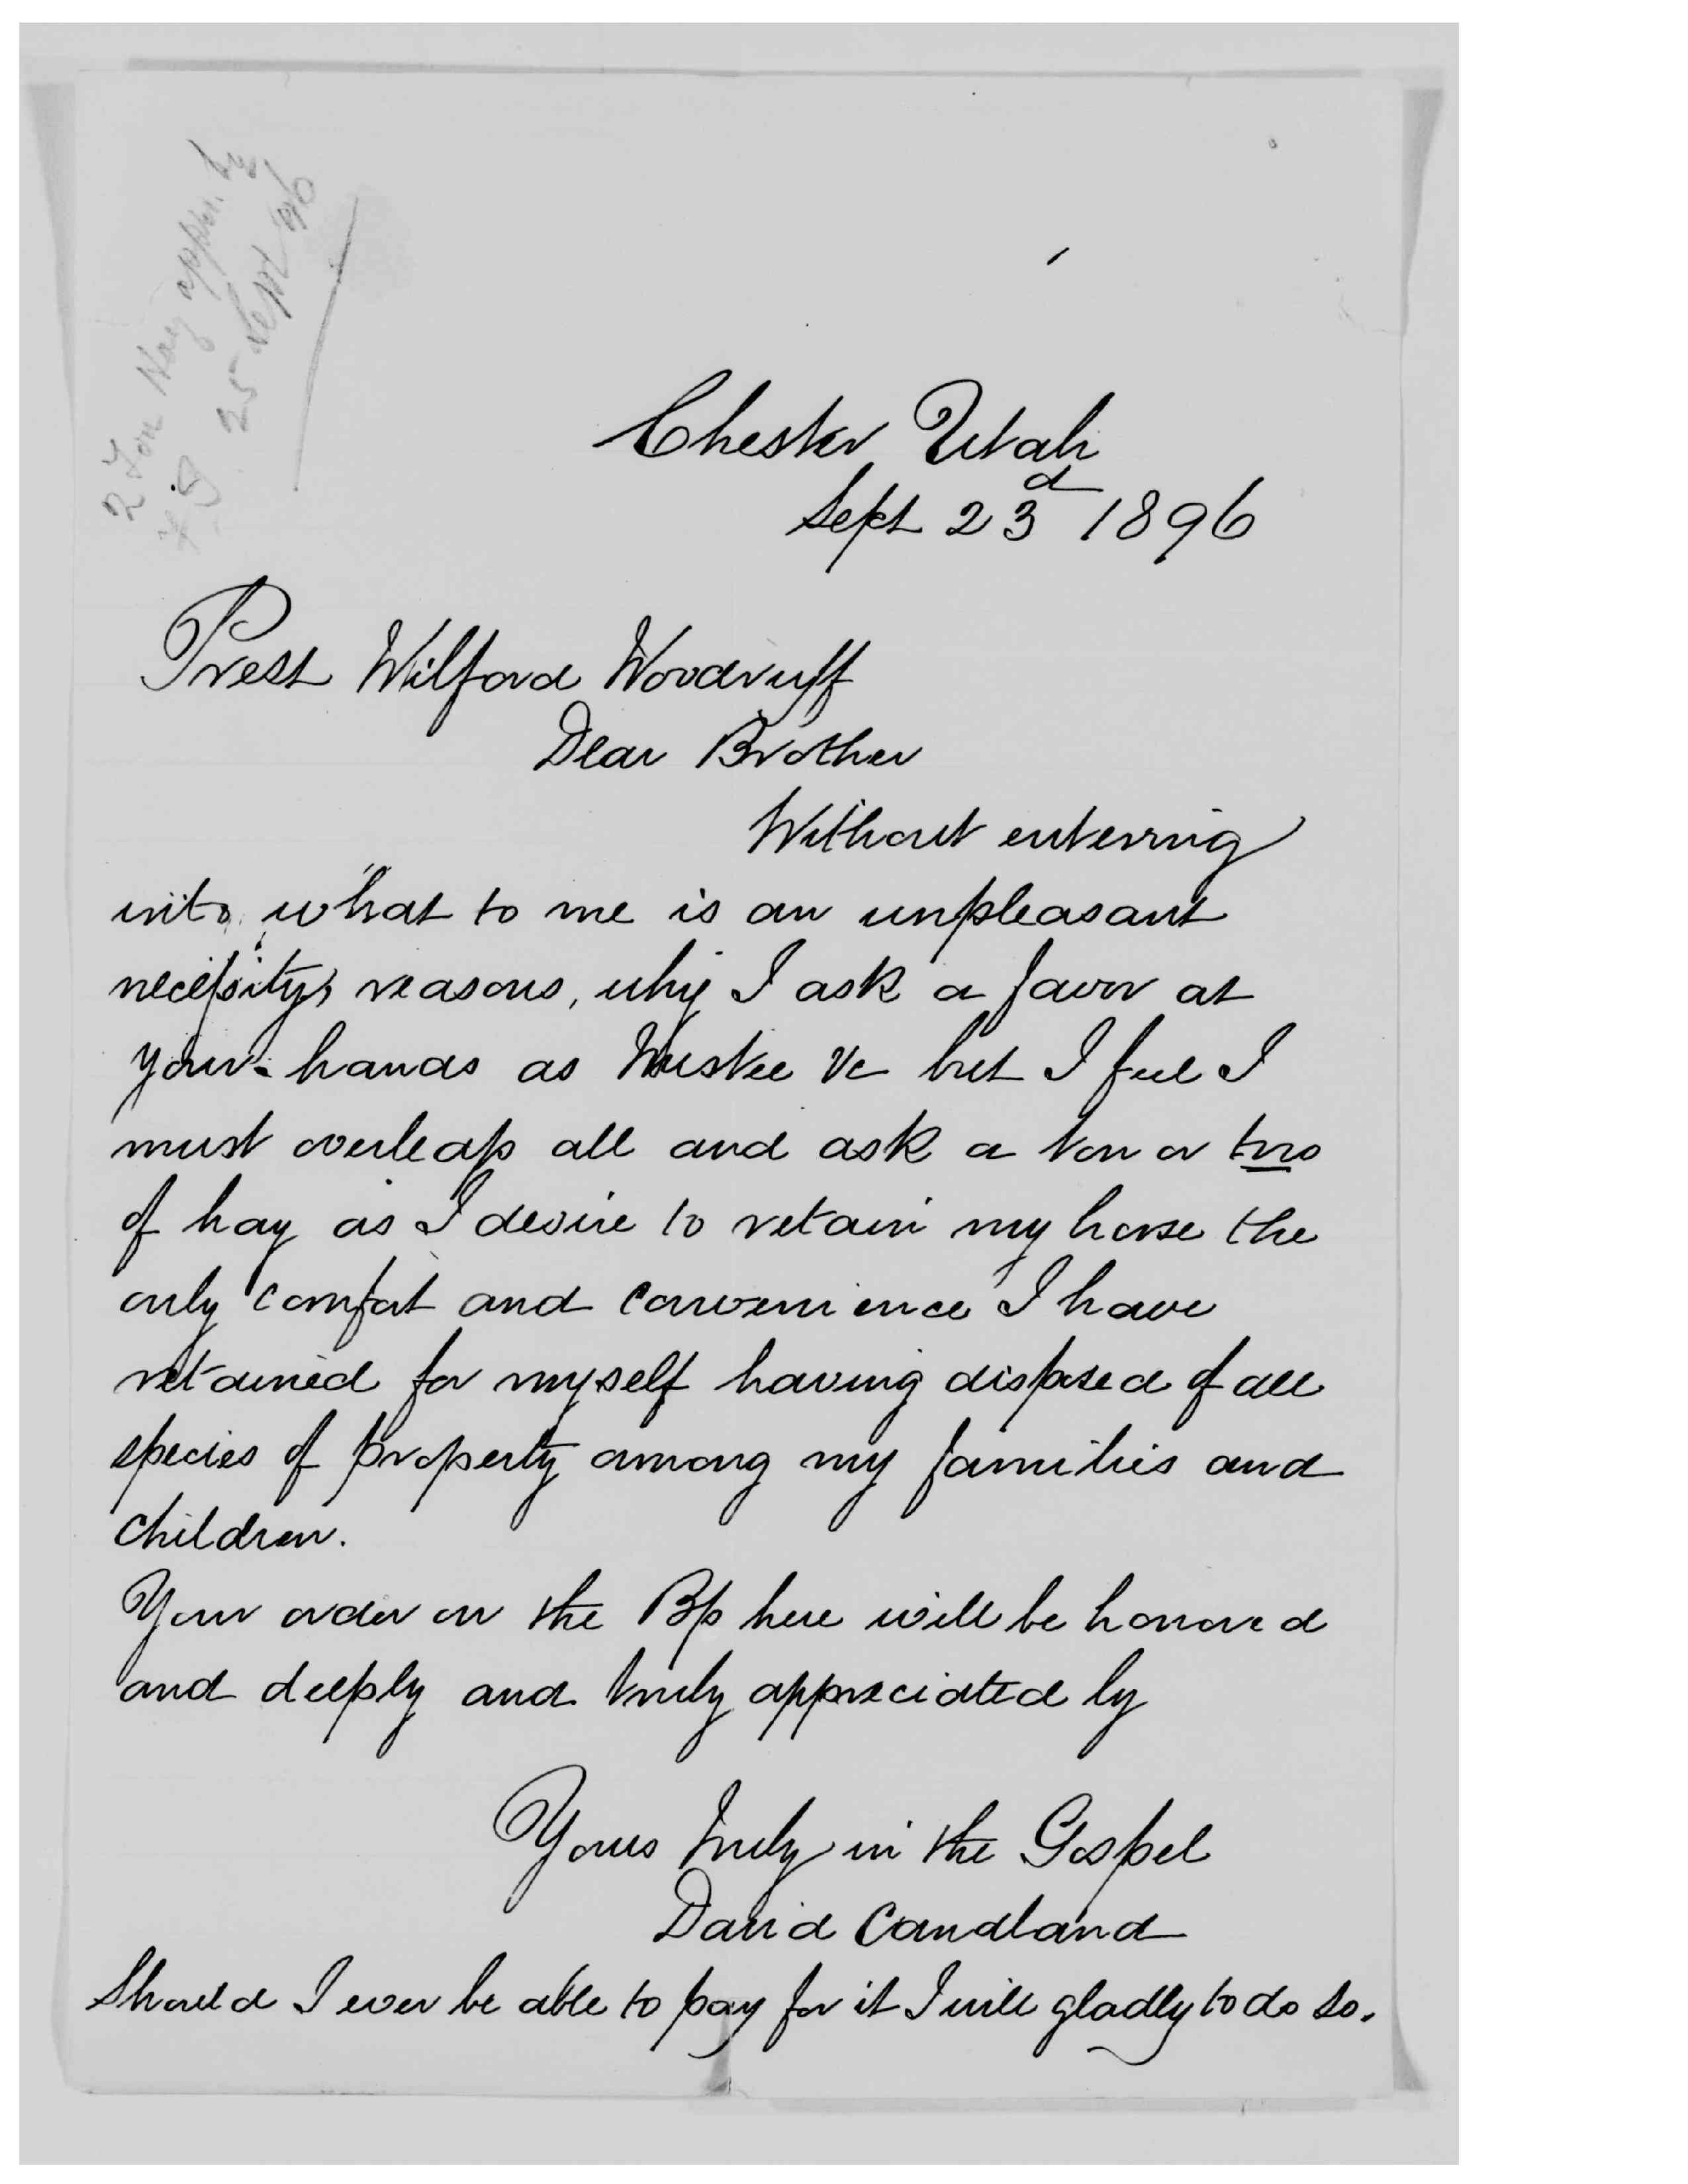 2 Ton Hay appr. by
F S 25 Sept 96
Chester Utah
Sept 23d 1896
Prest Wilford Woodruff
Dear Brother
Without enterring
into what to me is an unpleasant
necessity, reasons, why I ask a favor at
your hands as Trustee &c but I feel I
must overleap all and ask a ton or two
of hay as I desire to retain my horse the
only comfort and convenience I have
retained for myself having disposed of all
species of property among my families and
children.
Your order on the Bp here will be honored
and deeply and truly appreciated by
Yours truly in the Gospel
David Candland
Should I ever be able to pay for it I will gladly to do so.